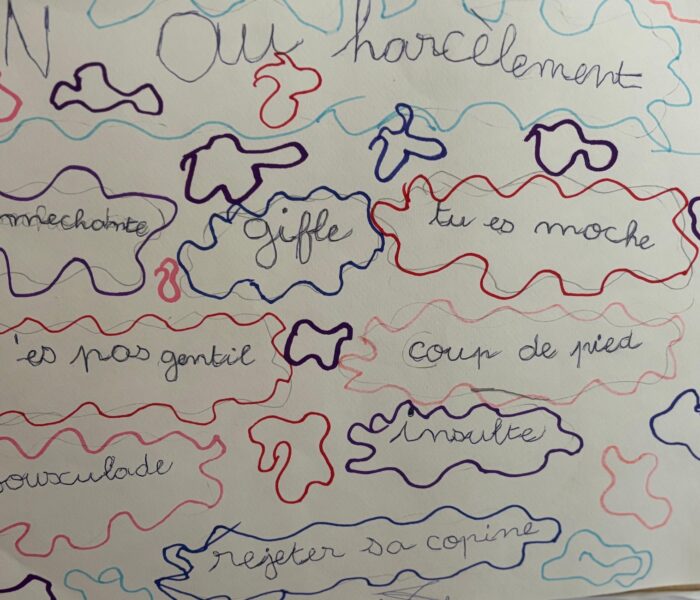 N au harcèlement
méchante
gifle
tu es moche
'es pas gentil
coup de pied
insulte
ousculade
rejeter sa copine